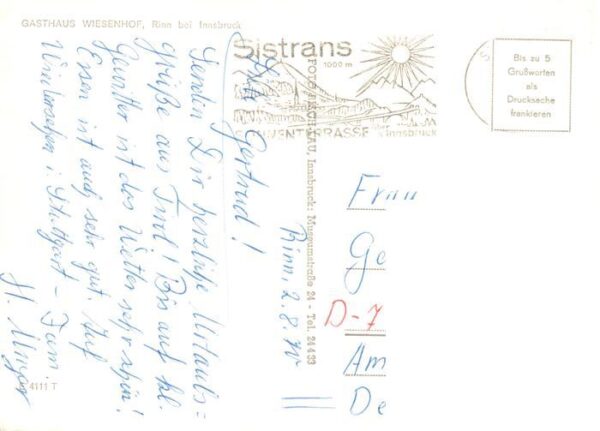 GASTHAUS WIESENHOF, Rinn bei Innsbruck
Rinn, 2.8.70
Liebe Gertrud!
Senden Dir herzliche Urlaubs=
grüße aus Tirol! Bis auf kl.
Gewitter ist das Wetter sehr schön!
Essen ist auch sehr gut. Auf
Wiedersehen i. Stuttgart – Fam.
H.
4111 T
Innsbruck: Museumstraße 24 - Tel. 24433
Sistrans
1000 m
Innsbruck
Bis zu 5
Grußworten
als
Drucksache
frankieren
Frau
Ge
D-7
Am
De